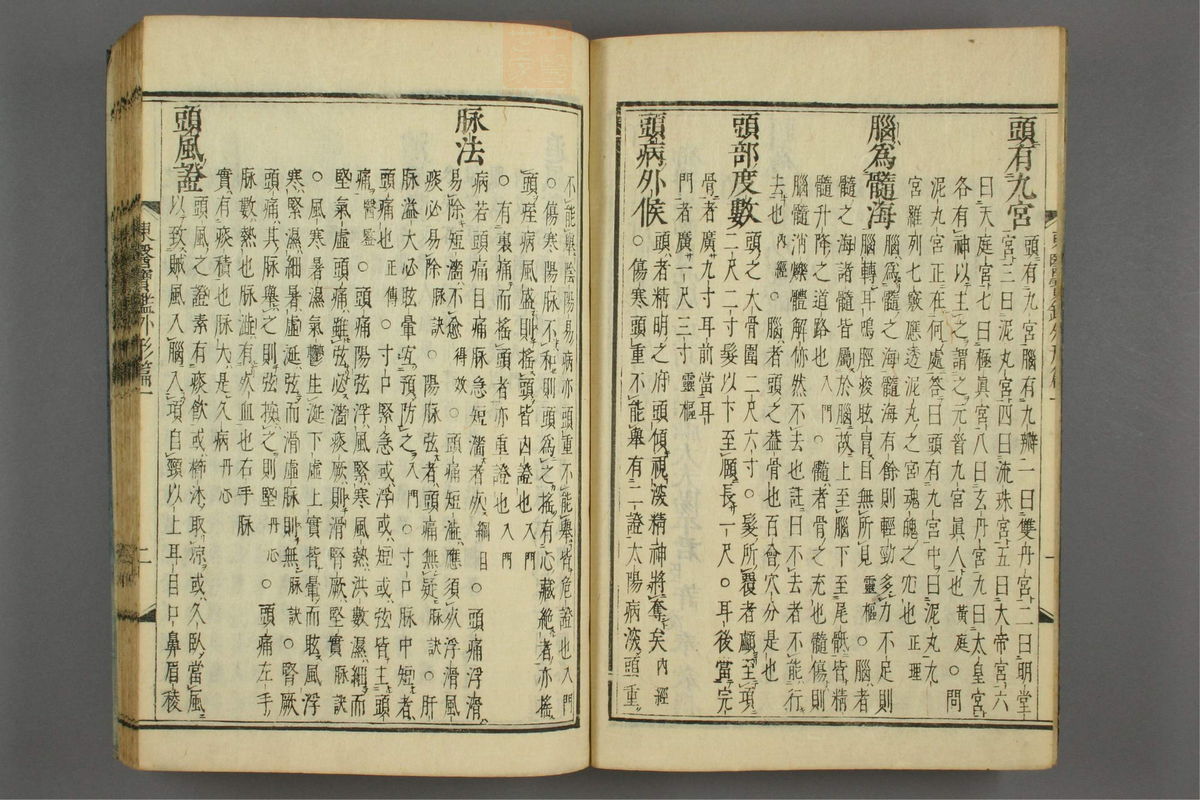 頭有九宮
頭有九宮腦有九瓣一曰雙丹宮二曰明堂
宮三曰泥丸宮四曰流珠宮五曰大帝宮六
曰天庭宮七曰極眞宮八曰玄丹宮九曰太皇宮
各有神以主之謂之元首九宮眞人也黃庭○問
泥丸宮正在何處答曰頭有九宮中曰泥丸九
宮羅列七竅應透泥丸之宮魂魄之穴也正理
腦爲髓海
腦爲髓之海髓海有餘則輕勁多力不足則
腦轉耳鳴脛痠眩冒目無所見靈樞○腦者
髓之海諸髓皆屬於腦故上至腦下至尾骶皆精
髓升降之道路也入門○髓者骨之充也髓傷則
腦髓消爍體解㑊然不去也註曰不去者不能行
去也內經○腦者頭之蓋骨也百會穴分是也
頭部度數
頭之大骨圍二尺六寸○髮所覆者顱至項
二尺二寸髮以下至頤長一尺○耳後當完
骨者廣九寸耳前當耳
門者廣一尺三寸靈樞
頭病外候
頭者精明之府頭傾視深精神將奪矣內經
○傷寒頭重不能擧有二證太陽病深頭重
不能擧陰陽易病亦頭重不能擧皆危證也入門
○傷寒陽脉不和則頭爲之搖有心藏絶者亦搖
頭痓病風盛則搖頭皆內證也入門
○有裏痛而搖頭者亦重證也入門
脉法
病若頭痛目痛脉急短濇者死綱目○頭痛浮滑
易除短濇不愈得效○頭痛短濇應須死浮滑風
痰必易除脉訣○陽脉弦者頭痛無疑脉訣○肝
脉溢大心眩暈宜預防之入門○寸口脉中短者
頭痛也正傳○寸口緊急或浮或短或弦皆主頭
痛醫鑑○頭痛陽弦浮風緊寒風熱洪數濕細而
堅氣虛頭痛雖弦必濇痰厥則滑腎厥堅實脉訣
○風寒暑濕氣鬱生涎下虛上實皆暈而眩風浮
寒緊濕細暑虛涎弦而滑虛脉則無脉訣○腎厥
頭痛其脉擧之則弦按之則堅丹心○頭痛左手
脉數熱也脉濇有死血也右手脉
實有痰積也脉大是久病丹心
頭風證
頭風之證素有痰飮或櫛沐取凉或久臥當風
以致賊風入腦入項自頸以上耳目口鼻眉稜
東醫寶鑑外形篇一